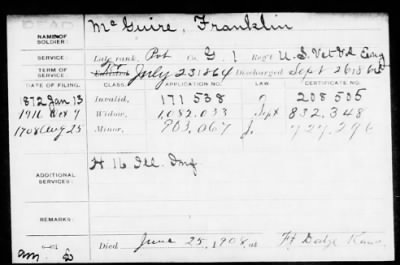 DEAD
NAME OF SOLDIER: McGuire, Franklin
SERVICE: Late rank, Pvt Co. G, 1 Reg't U.S. Vet Vol Eng
TERM OF SERVICE: Enlisted July 23 1864 Discharged Sept 26 1865
DATE OF FILING. CLASS. APPLICATION NO. LAW. CERTIFICATE NO.
1872 Jan 13 Invalid, 171538 208505
Widow, 1,082,033 Sept 832,348
1908 Aug 25 Minor, 903,067
ADDITIONAL SERVICES: H 16 Ill. Inf.
REMARKS:
Died June 25, 1908, at Ft Dodge Kans.